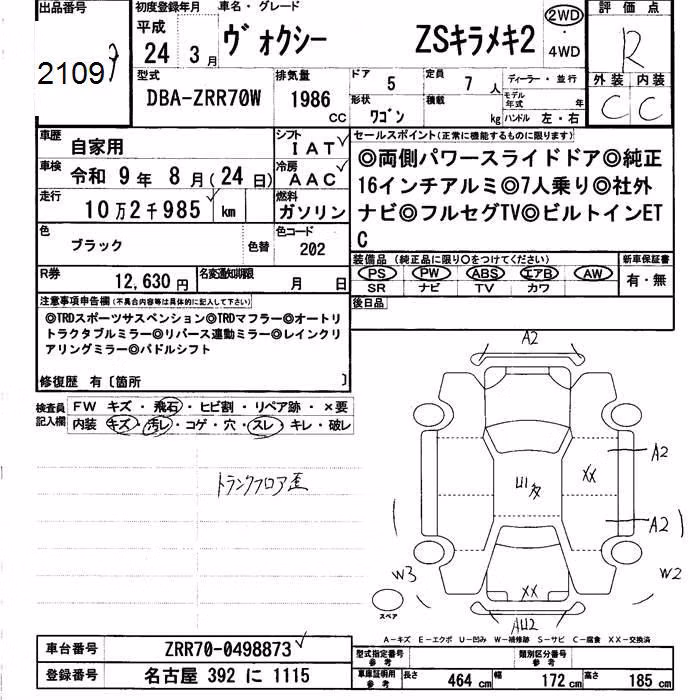 出品番号 初度登録年月 車名・グレード 評価点
2109
平成 24 3月 ヴォクシー ZSキラメキ2 2WD・4WD R
型式 排気量 ドア 5 定員 7人 ディーラー・並行 外装 内装
DBA-ZRR70W 1986 CC 形状 ワゴン 積載 kg モデル年式 年 C C
ハンドル 左・右
車歴 自家用 シフト IAT セールスポイント(正常に機能するものに限ります)
車検 令和 9年 8月(24日) 冷房 AAC ◎両側パワースライドドア◎純正
走行 10万2千985 km 燃料 ガソリン 16インチアルミ◎7人乗り◎社外
ナビ◎フルセグTV◎ビルトインET
C
色 ブラック 色替 色コード 202
装備品 (純正品に限り○をつけてください) 新車保証書
PS PW ABS エアB AW 有・無
SR ナビ TV カワ
R券 12,630円 名変通知期限 月 日
後日品
注意事項申告欄(不具合内容等は具体的に記入して下さい)
◎TRDスポーツサスペンション◎TRDマフラー◎オートリ
トラクタブルミラー◎リバース連動ミラー◎レインクリ
アリングミラー◎パドルシフト
修復歴 有〔箇所 〕
検査員記入欄 FW キズ・飛石・ヒビ割・リペア跡・×要
内装 キズ・汚レ・コゲ・穴・スレ・キレ・破レ
トランクフロア歪
A2
A2
XX
A2
W3
W2
XX
スペア
A-キズ E-エクボ U-凹み W-補修跡 S-サビ C-腐食 XX-交換済
車台番号 ZRR70-0498873
型式指定番号 参考 類別区分番号 参考
登録番号 名古屋 392 に 1115
車庫証明用 参考 長さ 464 cm 幅 172 cm 高さ 185 cm